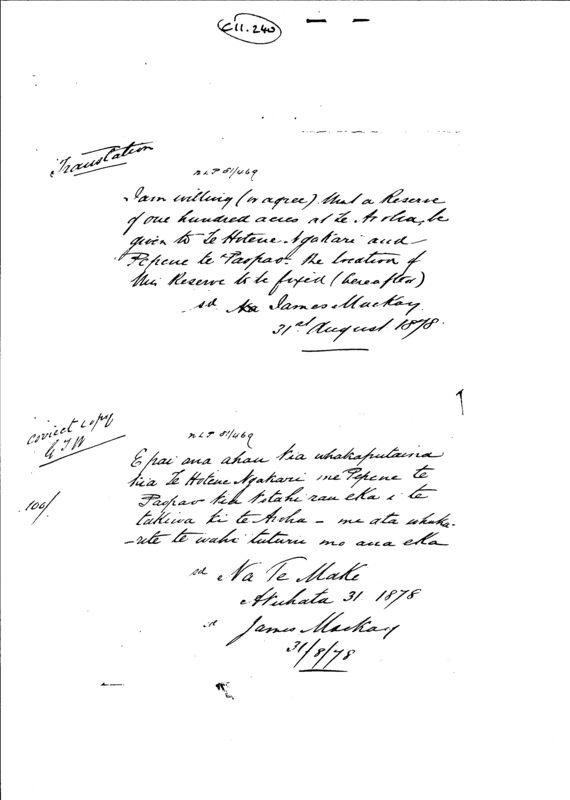 C11.240
Translation
NLP 81/469
I am willing (or agree) that a Reserve
of one hundred acres at Te Aroha, be
given to Te Hotene Ngakari and
Pepene te Paopao - the location of
this Reserve to be fixed (hereafter)
sd Na James Mackay
31st August 1878.
correct copy
NLP 81/469
E pai ana ahau kia whakaputaina
kia Te Hotene Ngakari me Pepene te
Paopao kia kotahi rau eka i te
takiwa ki te Aroha - me ata whaka-
-rite te wahi tuturu mo aua eka
100/
sd Na Te Make
Akuhata 31 1878
sd James Mackay
31/8/78